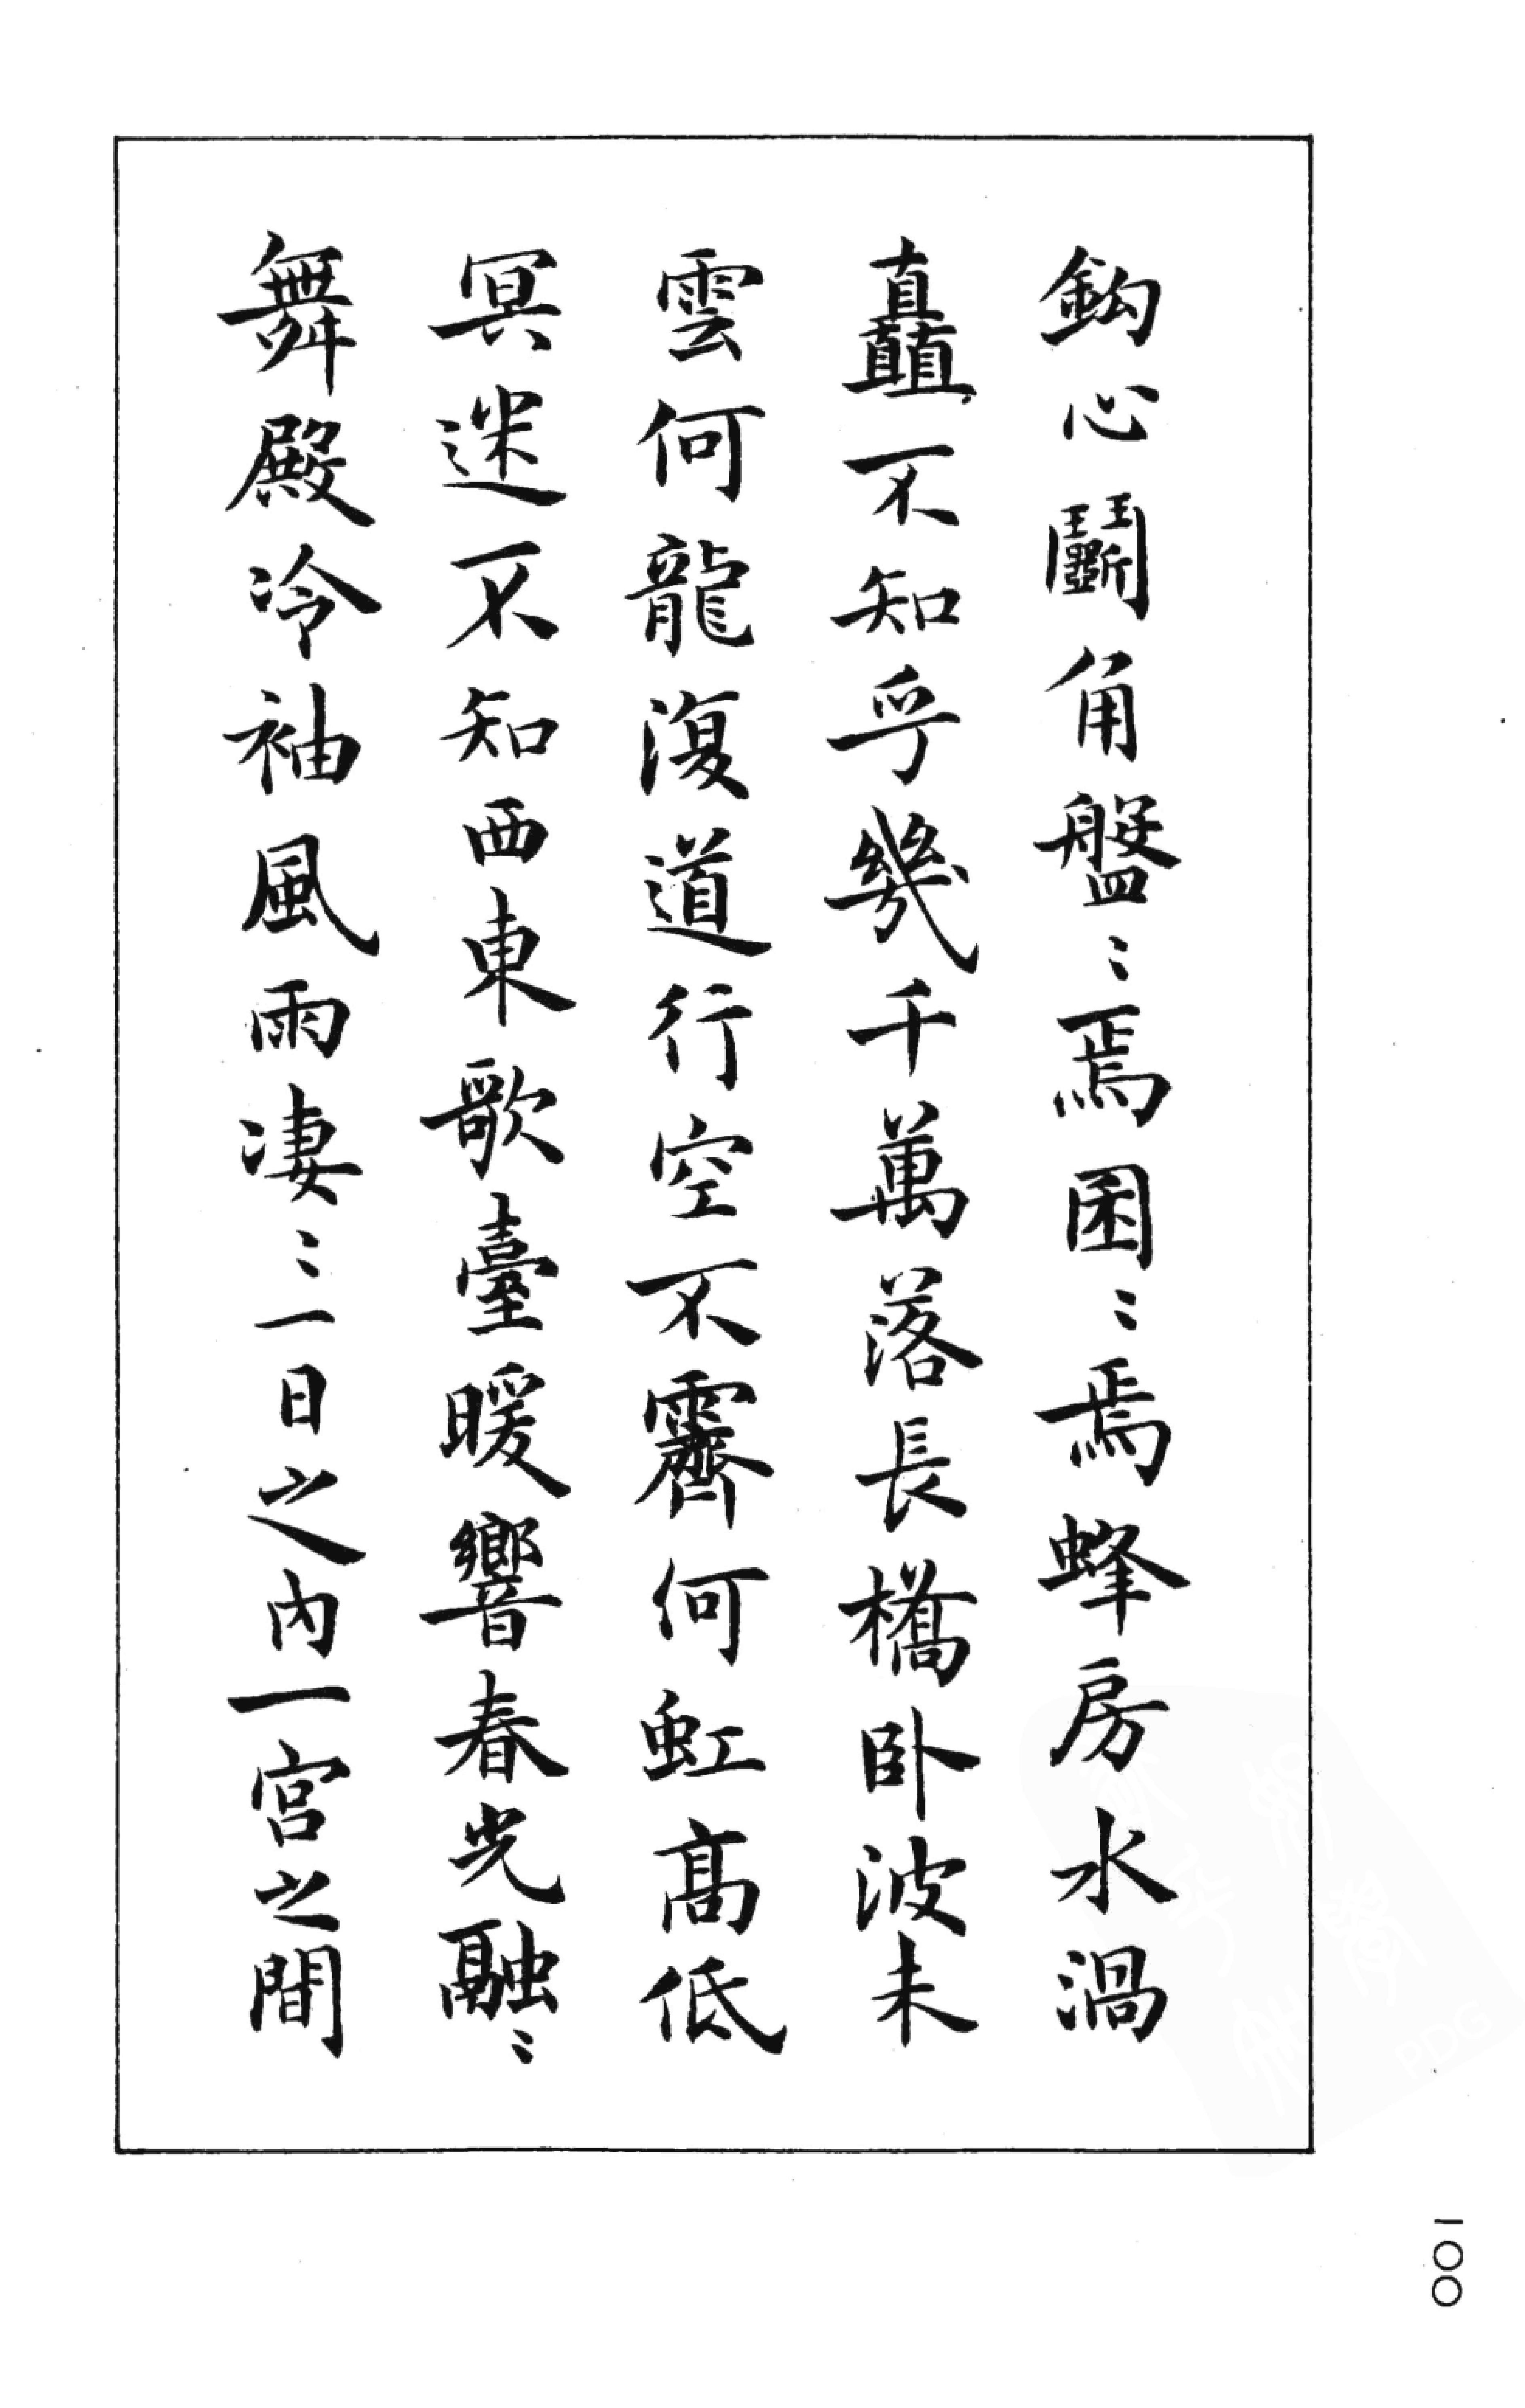 鈎心鬬角盤〻焉囷〻焉蜂房水渦
矗不知乎幾千萬落長橋卧波未
雲何龍復道行空不霽何虹高低
冥迷不知西東歌臺暖響春光融〻
舞殿冷袖風雨凄〻一日之內一宮之間
一〇〇